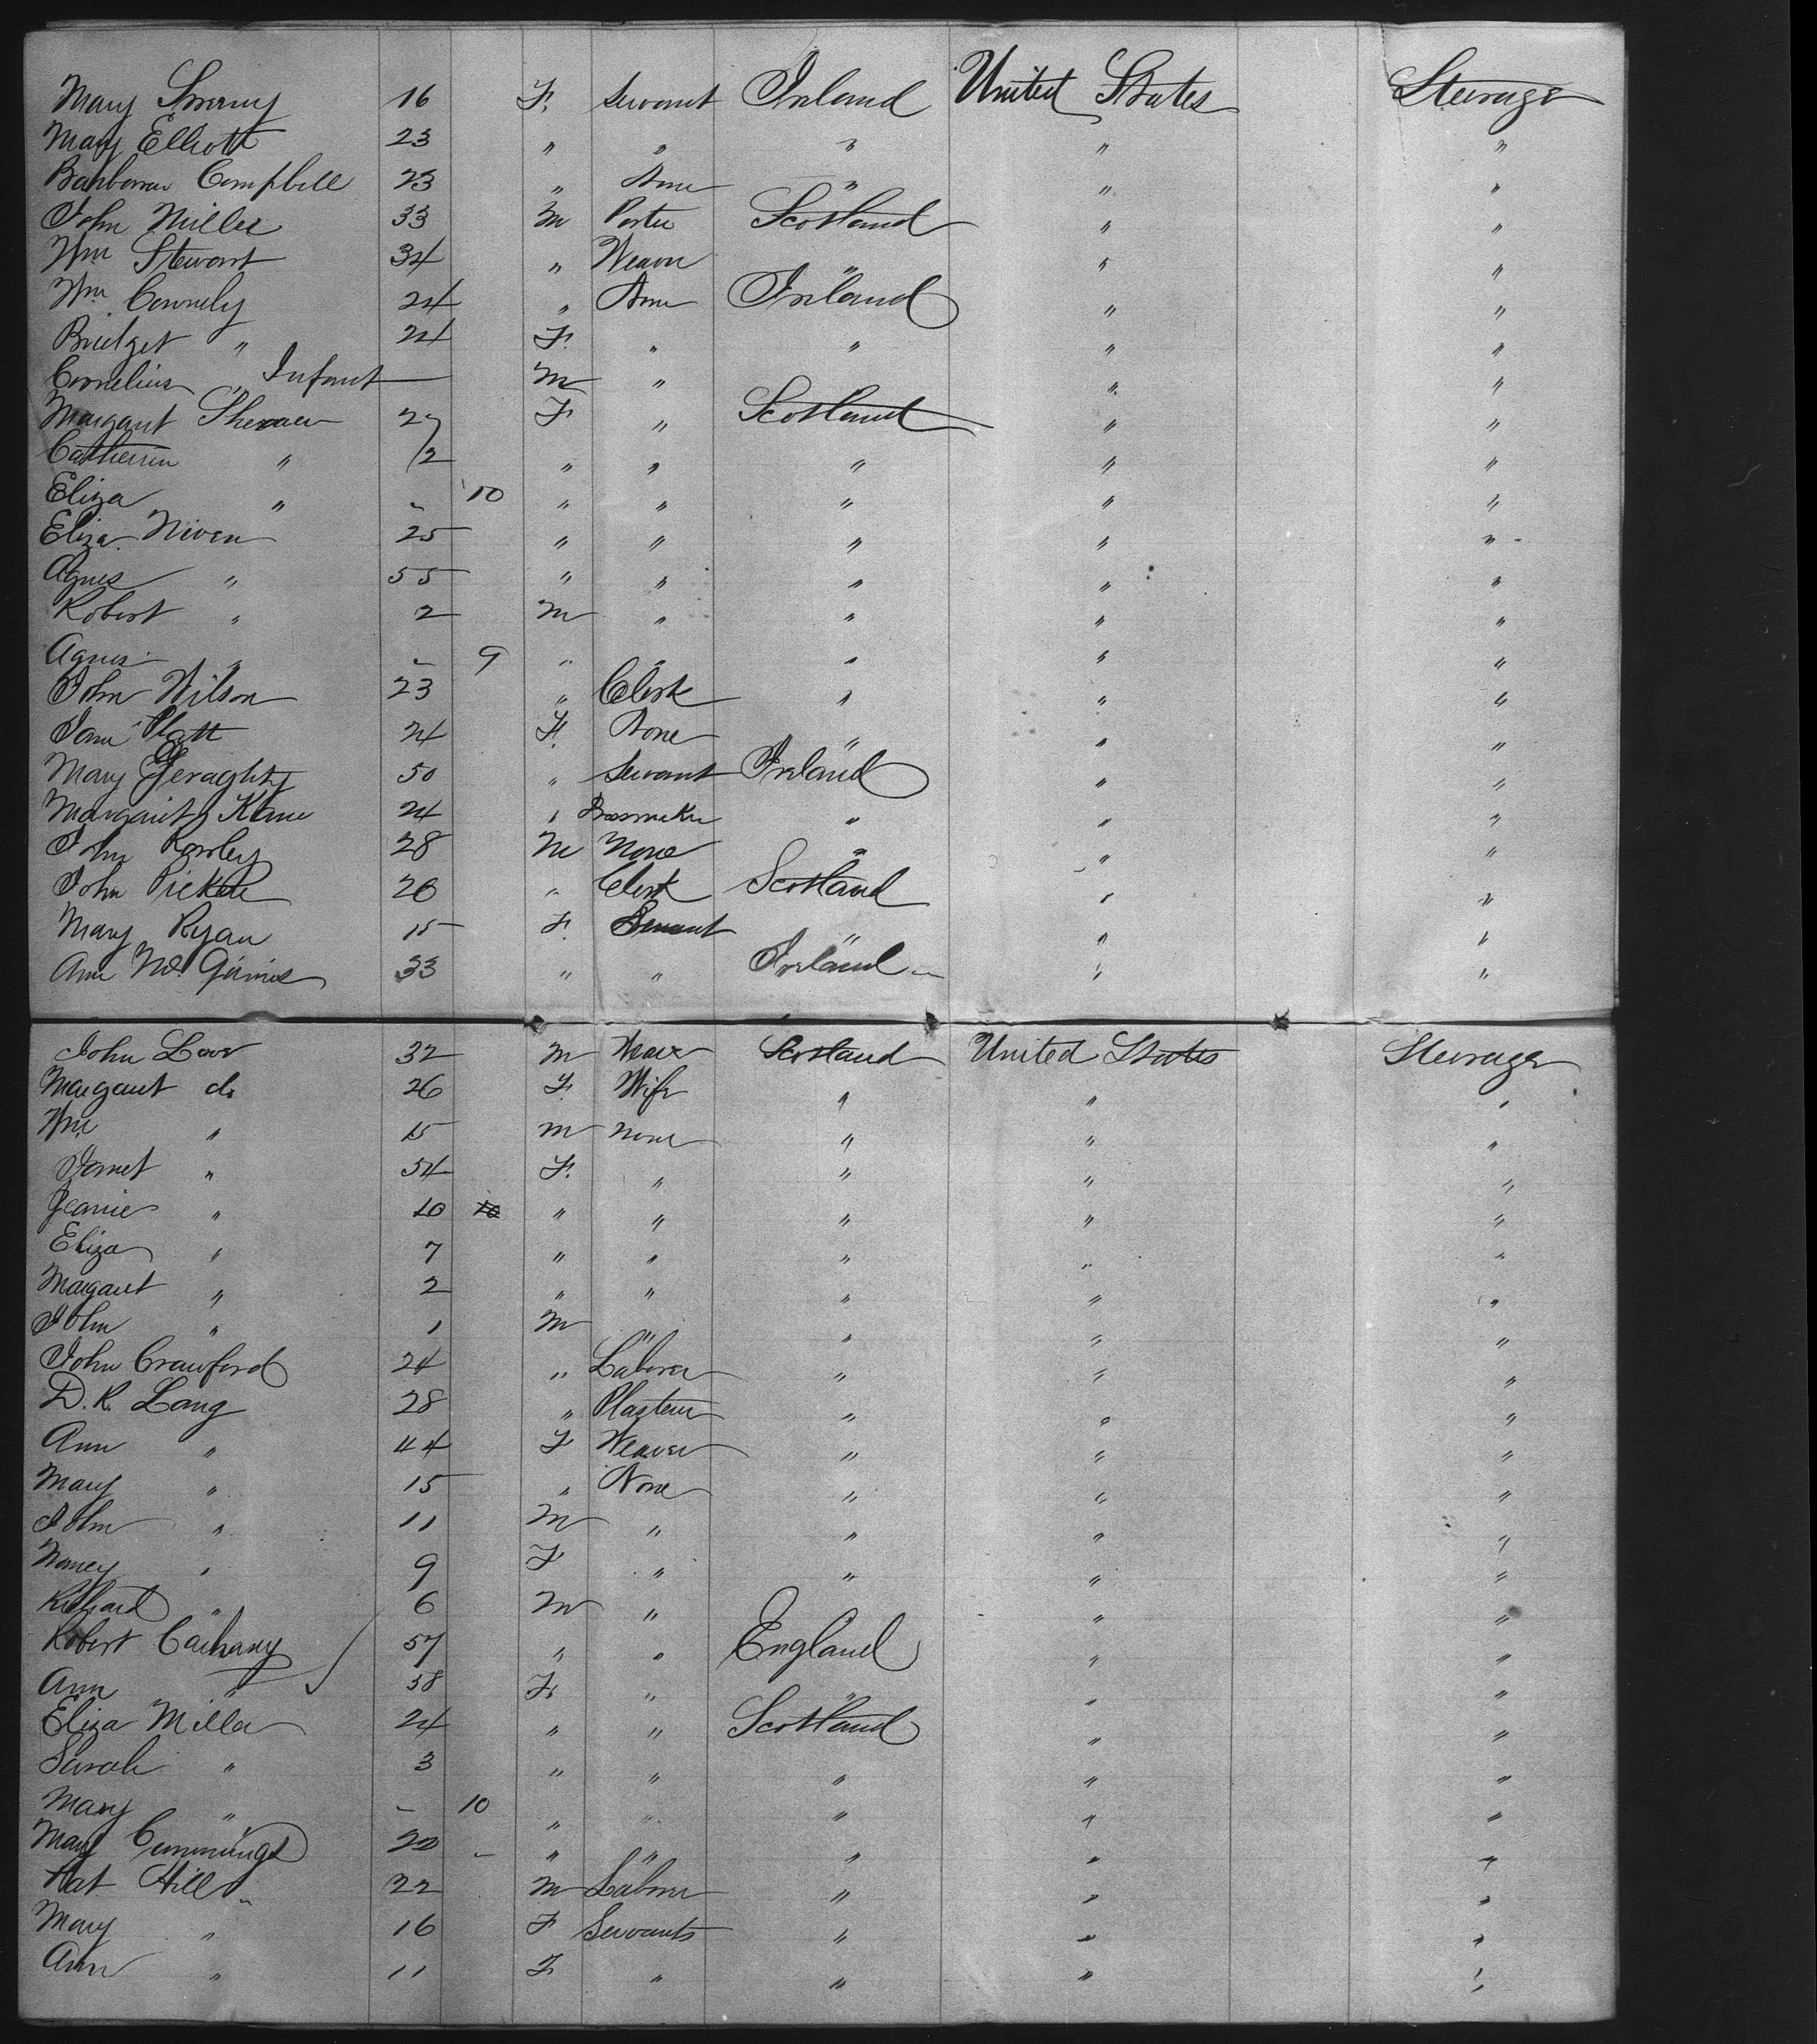 Mary 16 F. Servant Ireland United States Steerage
Mary Elliott 23 " " " " "
Barbara Campbell 23 " None " " "
John Miller 33 M Porter Scotland " "
Wm Stewart 34 " Weaver " " "
Wm Connely 24 " None Ireland " "
Bridget " 24 F. " " " "
Cornelius " Infant M " " " "
Margaret 27 F " Scotland " "
Catherine " 2 " " " " "
Eliza " - 10 " " " " "
Eliza Niven 25 " " " " "
Agnes " 55 " " " " "
Robert " 2 M " " " "
Agnes " - 9 " " " " "
John Wilson 23 " Clerk " " "
Jane Platt 24 F. None " " "
Mary Geraghty 50 " Servant Ireland " "
Margaret Kane 24 " " " "
John Rowley 28 M None " " "
John 26 " Clerk Scotland " "
Mary Ryan 15 F. Servant " " "
Ann 33 " " Ireland " "
John 32 M Scotland United States Steerage
Margaret do 26 F. Wife " " "
Wm " 15 M None " " "
Janet " 54 F. " " " "
Jeanie " 10 10 " " " " "
Eliza " 7 " " " " "
Margaret " 2 " " " " "
John " 1 M " " " "
John Crawford 24 " Laborer " " "
D. R. Lang 28 " Plasterer " " "
Ann " 44 F Weaver " " "
Mary " 15 " None " " "
John " 11 M " " " "
Nancy " 9 F " " " "
Richard " 6 M " " " "
Robert 57 " " England " "
Ann " 38 F. " " " "
Eliza Miller 24 " " Scotland " "
Sarah " 3 " " " " "
Mary " - 10 " " " " "
Mary Cummings 22 - " " " " "
Pat Hill 22 M Laborer " " "
Mary " 16 F Servants " " "
Ann " 11 F " " " "